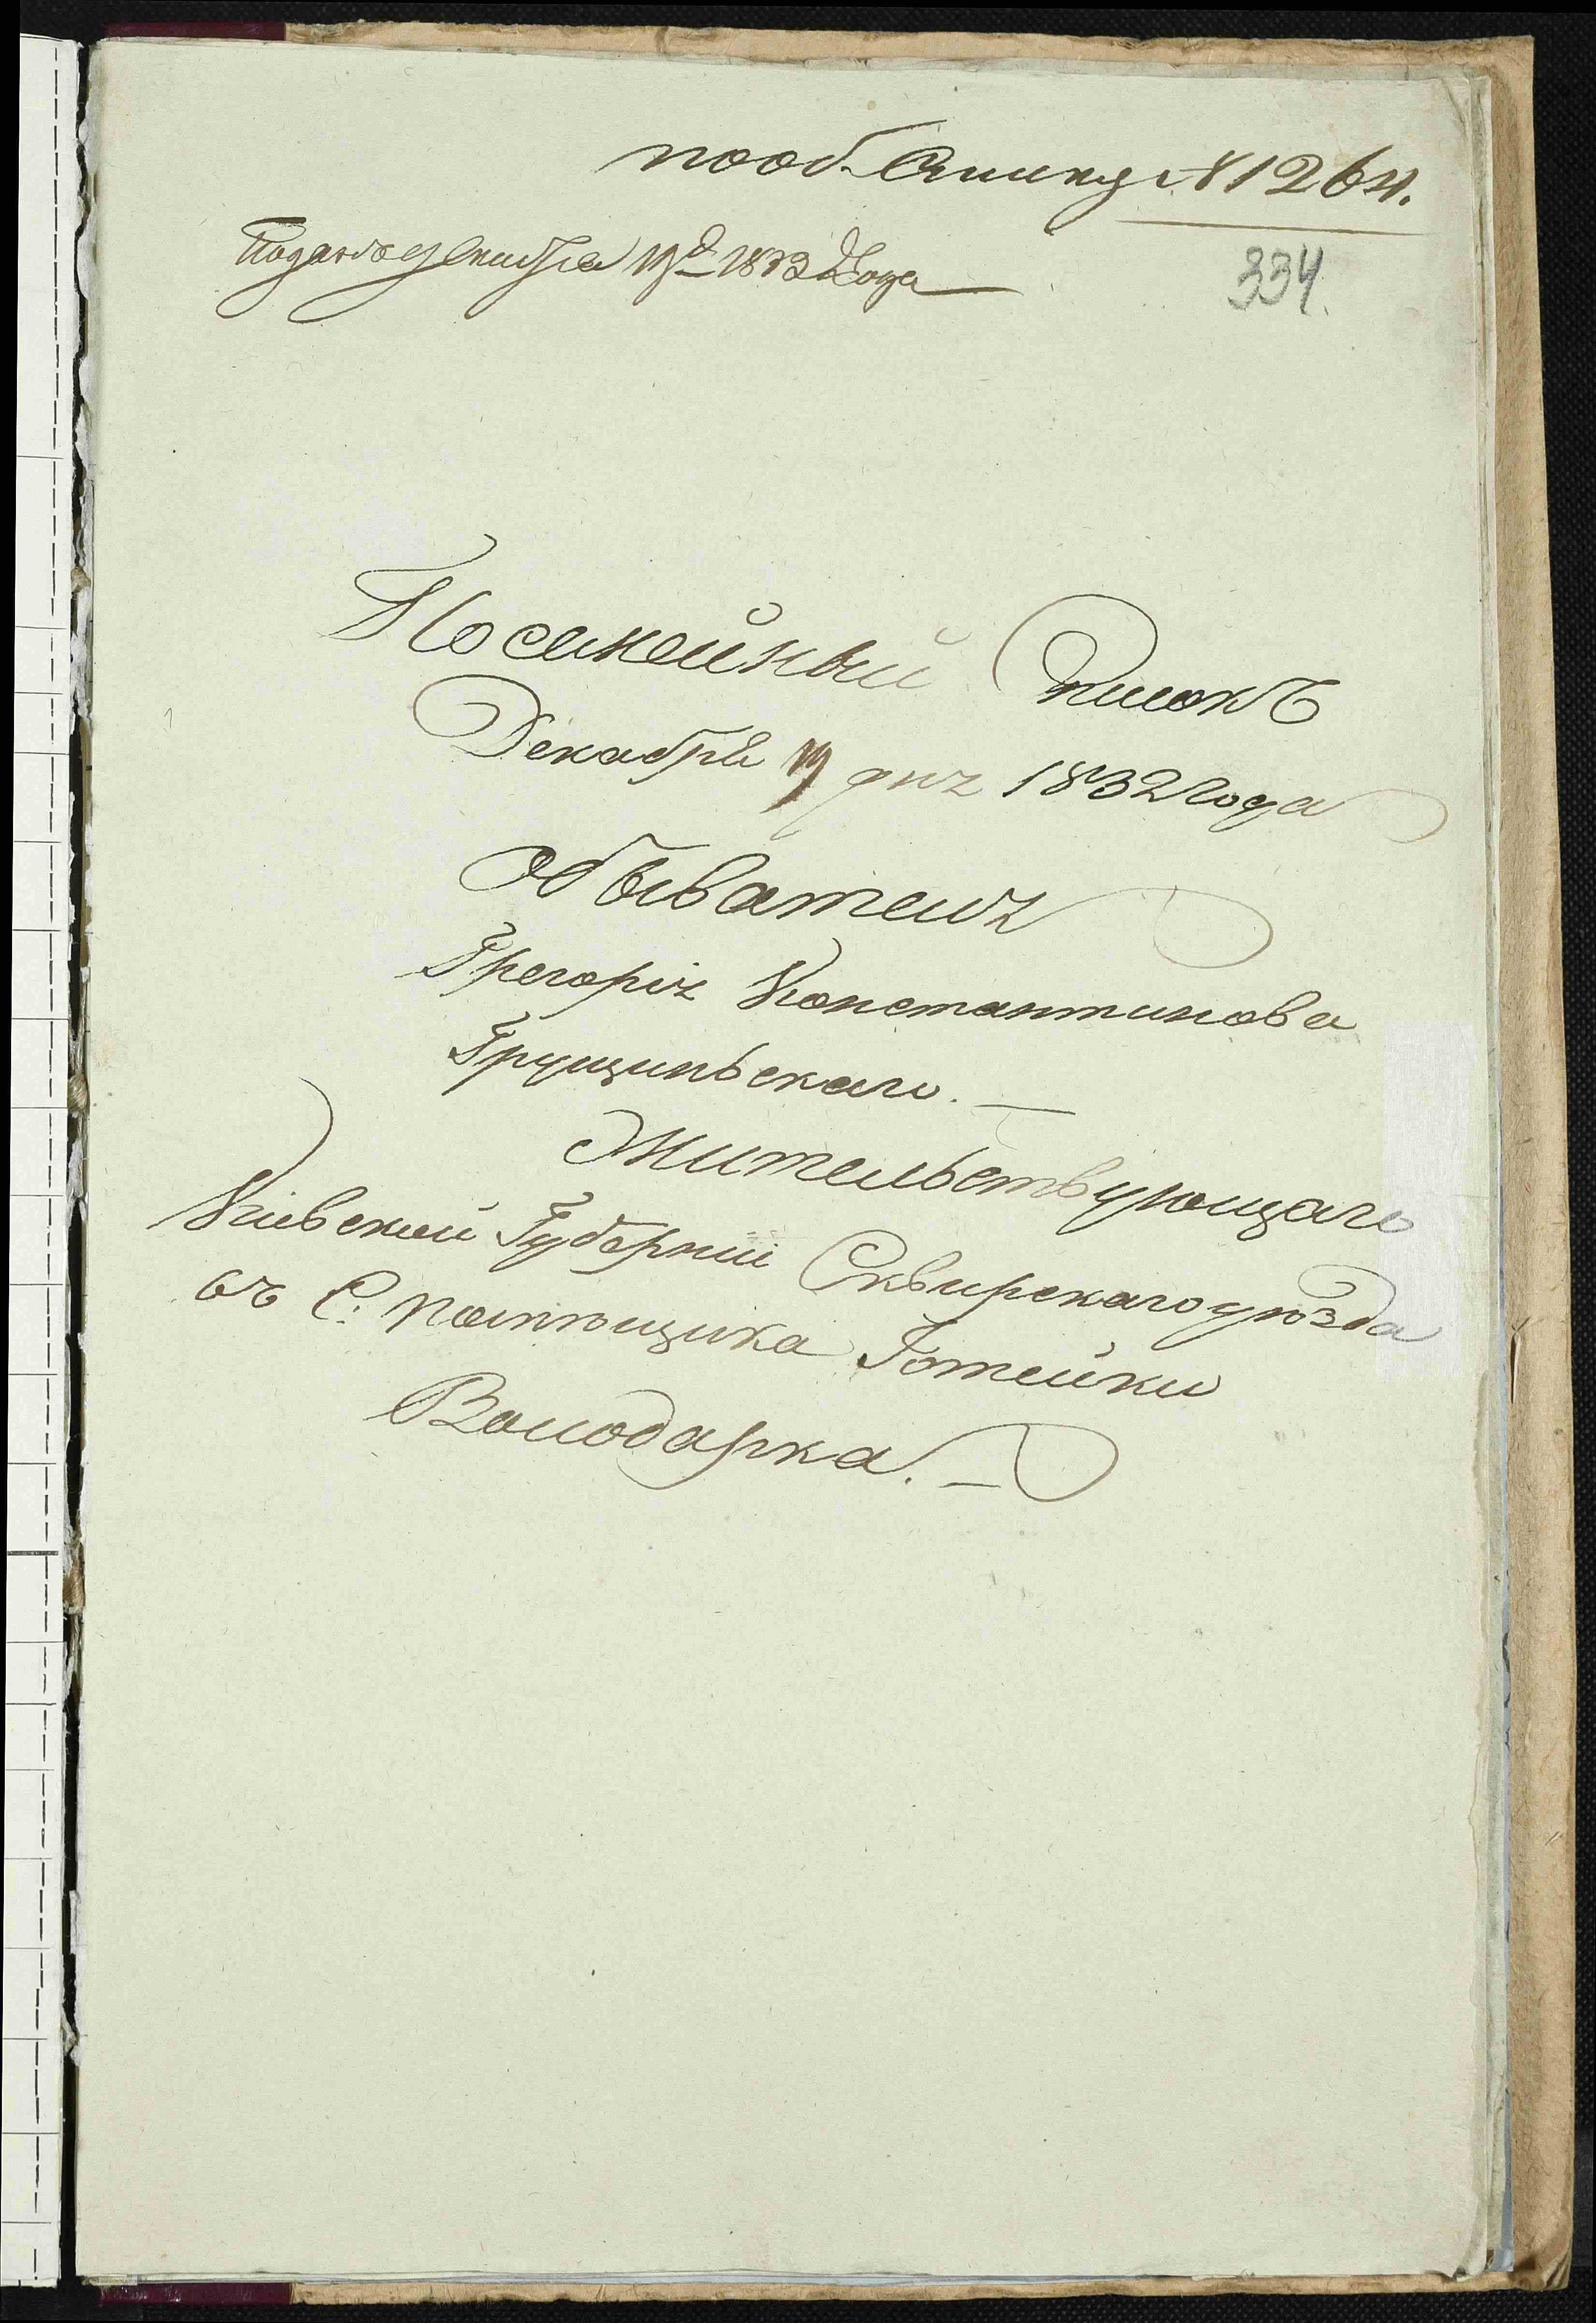 по об. Списку № 1264.
Подано Декабря 19д 1832 Года
334.
Посемейный Списокъ
Декабря 19 дня 1832 года
Обывателя
Грегорія Константинова
Грущиньскаго. —
Жительствующаго
Кіевской Губерніи Сквирскаго уѣзда
въ С. помѣщика Готейки
Володарка. —